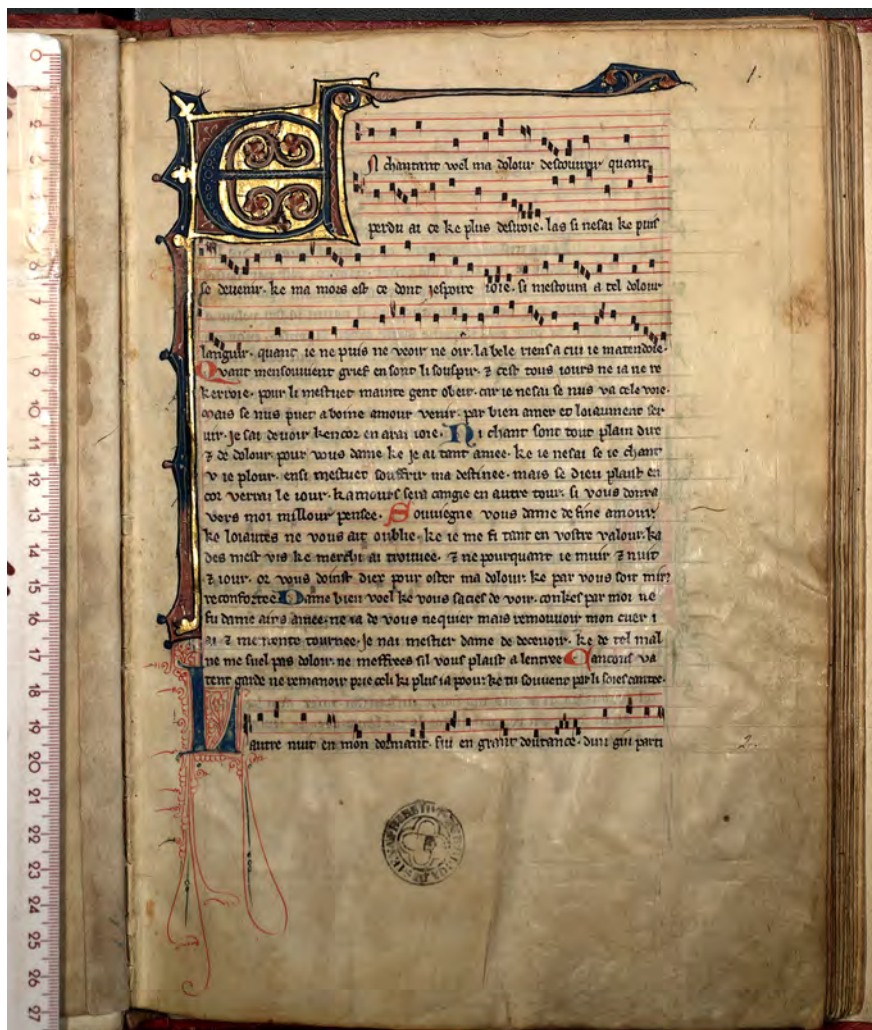 1.
En chantant voel ma dolour descouvrir quant
perdu ai ce ke plus desiroie. las si nesai ke puis
se devenir. ke ma mors est ce dont jespoire ioie. si mestoura a tel dolour
languir. quant ie ne puis ne veoir ne oir. la bele riens a cui ie matendoie.
Qvant mensouvient grief en sont li souspir. ⁊ cest tous iours ne ia ne re
kerroie. pour li mestuet mainte gent obeir. car ie nesai se nus va cele voie.
mais se nus puet a boine amour venir. par bien amer et loiaument ser
uir. je sai devoir kencor en arai ioie. Ni chant sont tout plain dire
⁊ de dolour. pour vous dame ke je ai tant amee. ke ie nesai se ie chant
v ie plour. ensi mestuet souffrir ma destinee. mais se dieu plaist en
cor verrai le iour. kamours sera cangie en autre tour. si vous donra
vers moi millour pensee. Souviegne vous dame de fine amour.
ke loiautes ne vous ait oublie. ke ie me fi tant en vostre valour. ka
des mest vis ke merchi ai trouuee. ⁊ ne pourquant ie muir ⁊ nuit
⁊ iour. or vous doinst diex pour oster ma dolour. ke par vous soit
reconfortee Dame bien voel ke vous sacies de voir. conkes par moi ne
fu dame airs amee. ne ia de vous nequier mais remouvoir mon cuer i
ai ⁊ me tournee. je nai mestier dame de decevoir. ke de tel mal
ne me suel pas doloir. ne meffrees sil vous plaist a lentree Cancons va
tent garde ne remanoir prie celi ki plus ia pooir. ke tu souvent par li soies cantee.
Lautre nuit en mon dormant. fui en grant doutance. dun giu parti
2.
0
1
2
3
4
5
6
7
8
9
10
11
12
13
14
15
16
17
18
19
20
21
22
23
24
25
26
27